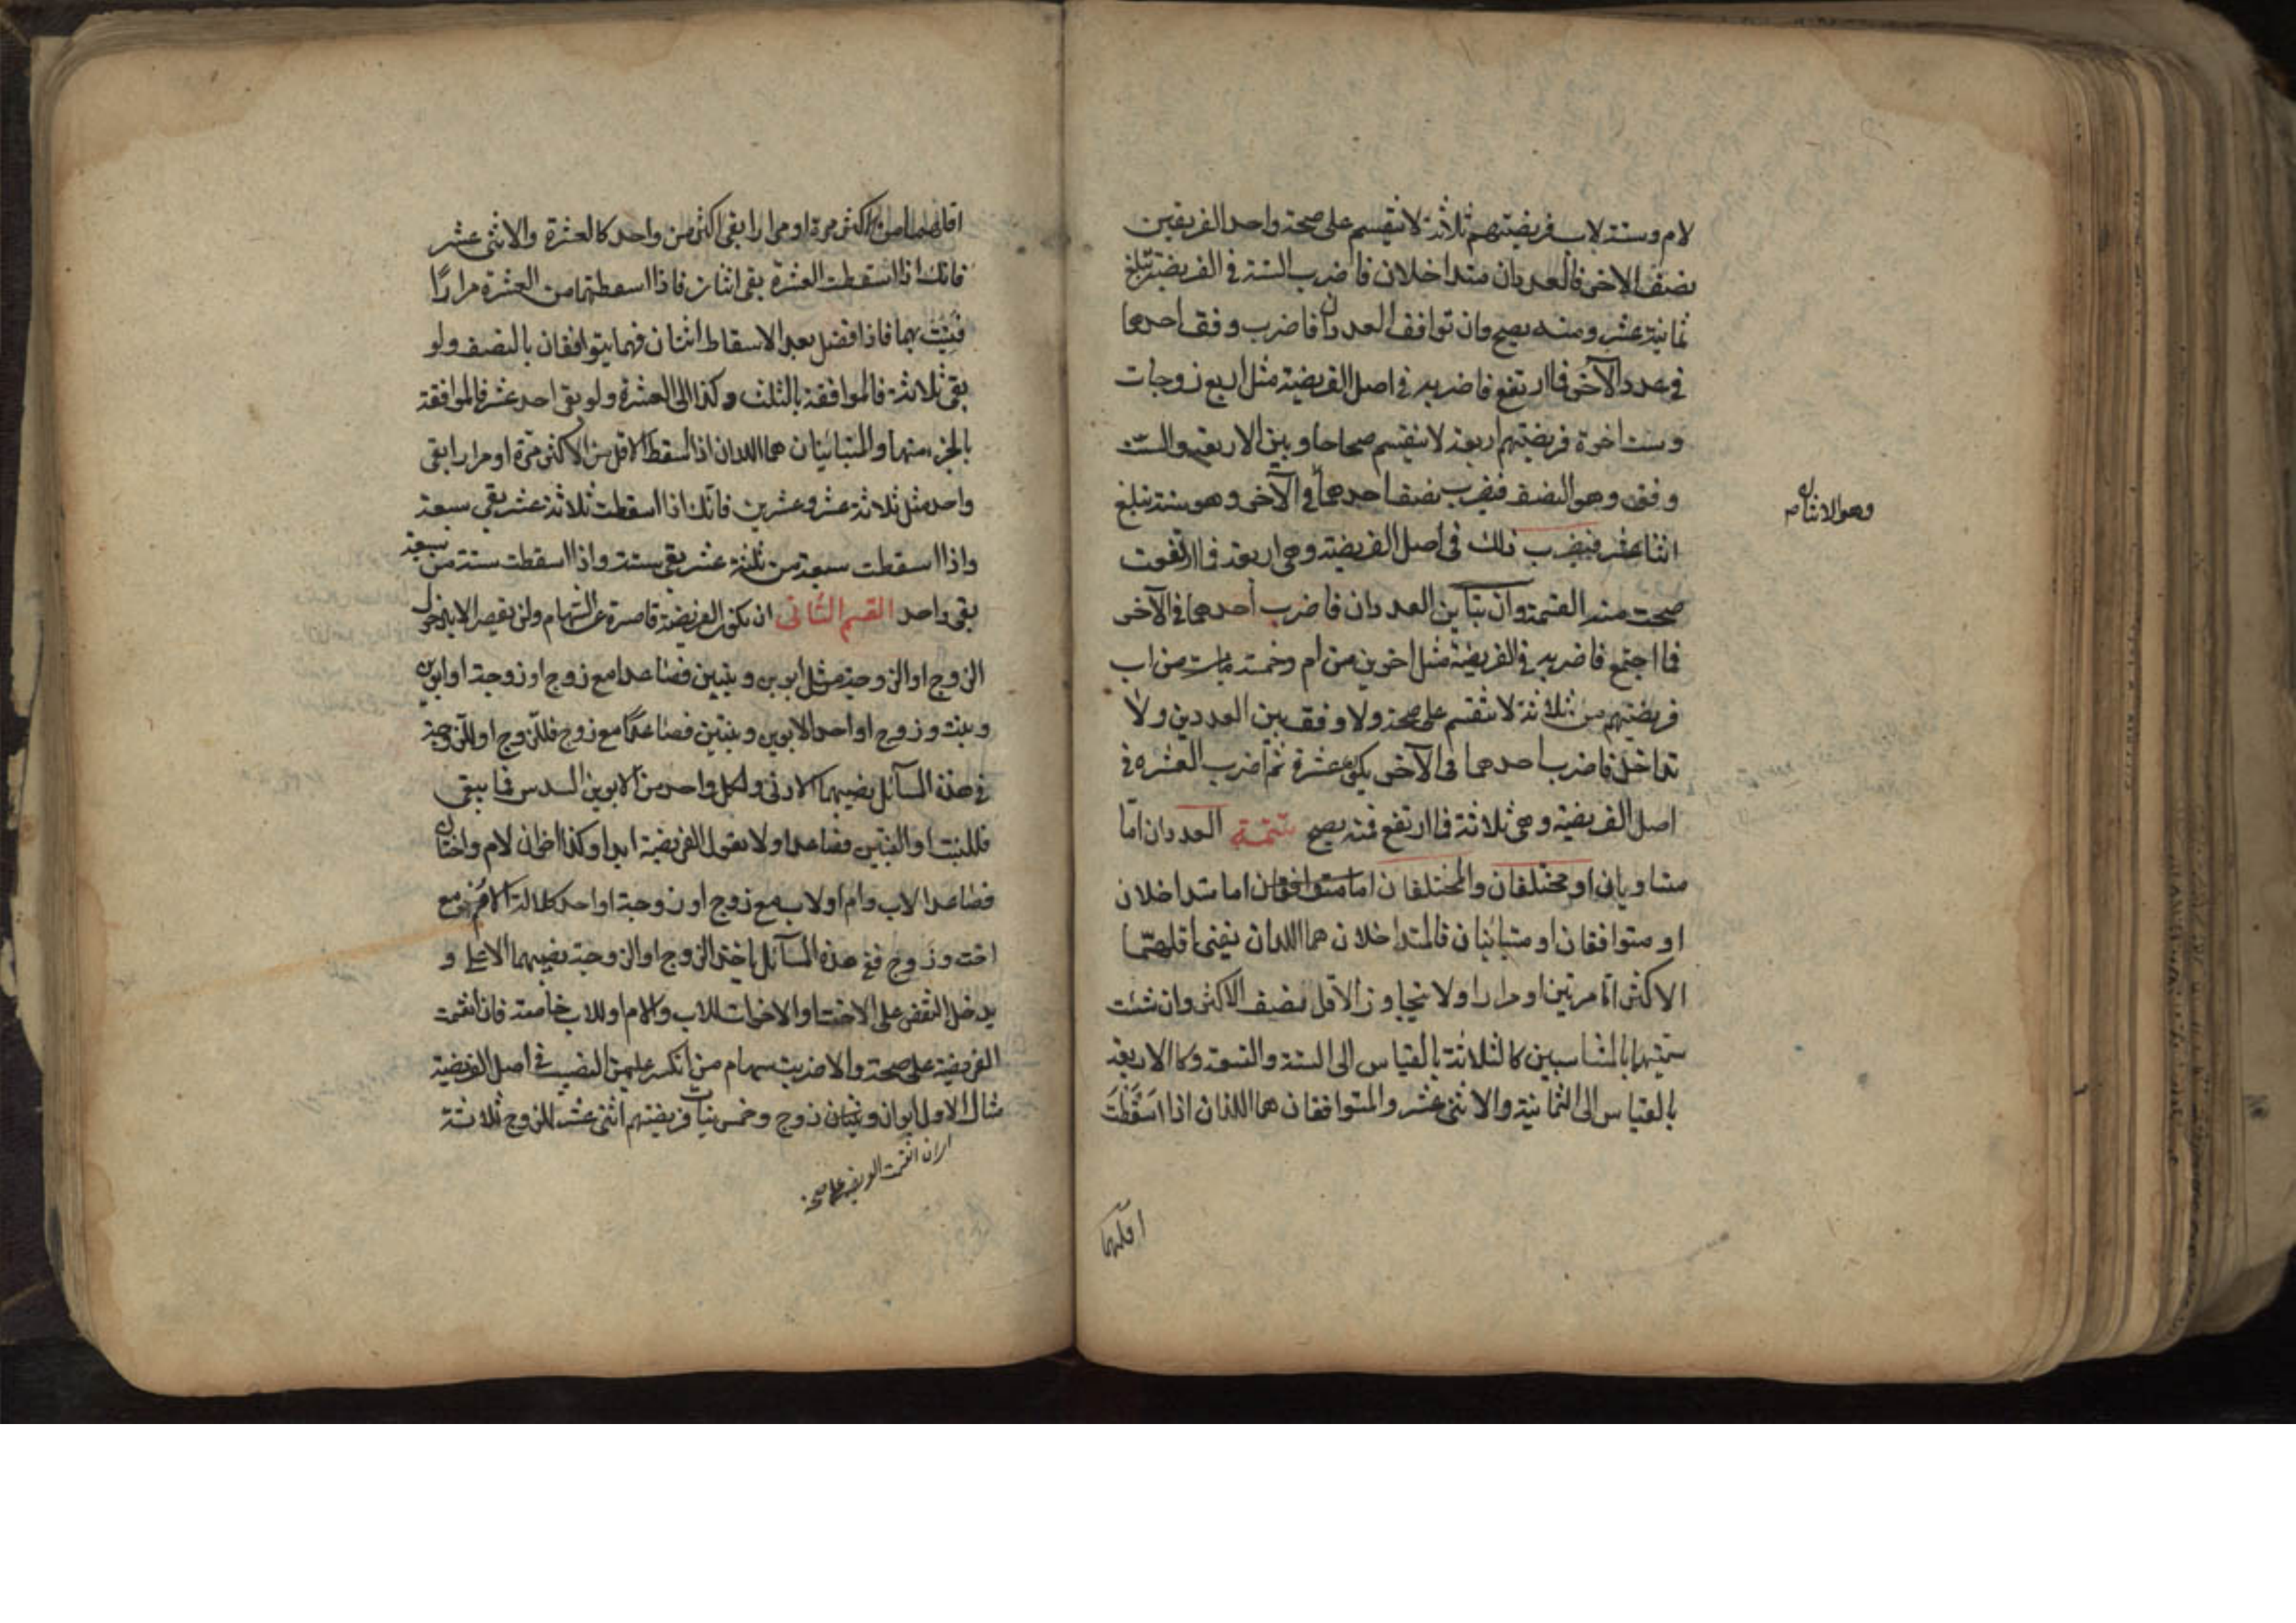 لام وستة لاب فريضتهم ثلاثة لا تنقسم على صحة واحد الفريقين
نصف الاخر فالعددان متداخلان فاضرب الستة في الفريضة تبلغ
ثمانية عشر ومنه يصح وان توافق العددان فاضرب وفق احدهما
في عدد الآخر فما ارتفع فاضربه في اصل الفريضة مثل اربع زوجات
وست اخوة فريضتهم اربعة لا ينقسم صحاحا وبين الاربعة والستة
وفق وهو النصف فيضرب نصف احدهما في الآخر وهو ستة تبلغ
وهو الاثنان
اثنا عشر فيضرب ذلك في اصل الفريضة وهي اربعة فما ارتفعت
صحت منه القسمة وان تباين العددان فاضرب أحدهما في الآخر
فما اجتمع فاضربه في الفريضة مثل اخوين من ام وخمسة من اب
فريضتهم من ثلاثة لا تنقسم على صحة ولا وفق بين العددين ولا
تداخل فاضرب احدهما في الآخر يكون عشرة ثم اضرب العشرة في
اصل الفريضة وهي ثلاثة فما ارتفع فمنه يصح تتمة العددان امّا
متساويان او مختلفان والمختلفان اما متوافقان اما متداخلان
او متوافقان او متباينان فالمتداخلان هما اللذان يفنى اقلهما
الاكثر امّا مرتين او مرارا ولا يتجاوز الأقل نصف الاكثر وان شئت
سمّيتهما بالمتناسبين كالثلاثة بالقياس الى الستة والتسعة وكالاربعة
بالقياس الى الثمانية والاثنى عشر والمتوافقان هما اللذان اذا اسقطت
اقلهما
اقلهما من الاكثر مرة او مرارا بقى اكثر من واحد كالعشرة والاثنى عشر
فانك اذا اسقطت العشرة بقى اثنان فاذا اسقطتهما من العشرة مرارًا
فنيت بهما فاذا فضل بعد الاسقاط اثنان فهما يتوافقان بالنصف ولو
بقى ثلاثة فالموافقة بالثلث وكذا الى العشرة ولو بقى احد عشر فالموافقة
بالجزء منهما والمتباينان هما اللذان اذا اسقط الاقل من الاكثر مرّة او مرارا بقى
واحد مثل ثلاثة عشر وعشرين فانّك اذا اسقطت ثلاثة عشر بقي سبعة
واذا اسقطت سبعة من ثلثة عشر بقى ستة واذا اسقطت ستة من سبعة
بقى واحد القسم الثانى ان يكون الفريضة قاصرة عن السّهام ولن يقصر الا بدخول
الزوج او الزوجة مثل ابوين وبنتين فصاعدا مع زوج او زوجة او ابوين
وبنت وزوج او احد الابوين وبنتين فصاعدًا مع زوج فللزوج او للزوجة
في هذه المسآئل نصيبهما الادنى ولكل واحد من الابوين السدس فما يبقى
فللبنت او البنتين فصاعدا ولا تعول الفريضة ابدا وكذا اخوان لام واختان
فصاعدا لاب وام او لاب مع زوج او زوجة او احد كلالة الام مع
اخت وزوج ففي هذه المسآئل ياخذ الزوج او الزوجة نصيبهما الاعلى و
يدخل النقص على الاخت او الاخوات للاب والام او للاب خاصة فان انقسمت
الفريضة على صحة والا ضربت سهام من انكسر عليهم النصيب في اصل الفريضة
مثال الاول ابوان زوج وخمس بنات فريضتهم اثنى عشر للزوج ثلاثة